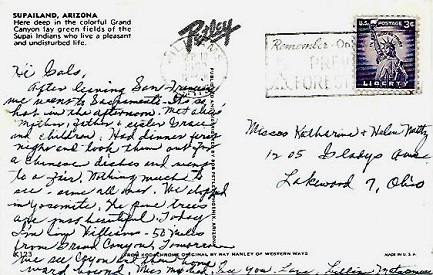 SUPAILAND, ARIZONA
Here deep in the colorful Grand
Canyon lay green fields of the
Supai Indians who live a pleasant
and undisturbed life.
Petley
Remember-On
PREV
FOREST
U.S. POSTAGE 3¢
LIBERTY
Hi Gals,
After leaving San Francisco
we went to Sacramento. Its so
hot in the afternoon. Met Alice's
Mother, Father & sister Grace
and children. Had dinner first
night and took them out for
a Chinese dishes and went
to a Fair. Nothing much to
see - same all over. We stopped
in Yosemite. The pine trees
are most beautiful. Today
I'm in Williams - 50 miles
from Grand Canyon. Tomorrow
we see Cyn and then home
ward bound. Miss my bed. See you. Love, Lillian
Misses Katharine & Helen
1205 Gladys Ave.
Lakewood 7, Ohio
K123
FROM KODACHROME ORIGINAL BY RAY MANLEY OF WESTERN WAYS
MADE IN U.S.A.